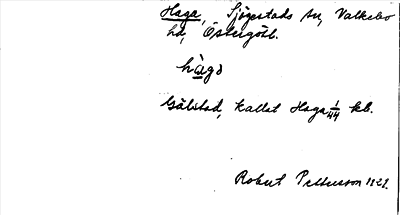 Haga, Sjögestads sn, Valkebo
hd, Östergötl.
hàgɔ
Gålstad, kallat Haga 1/44 kb.
Robert Pettersson 1929.